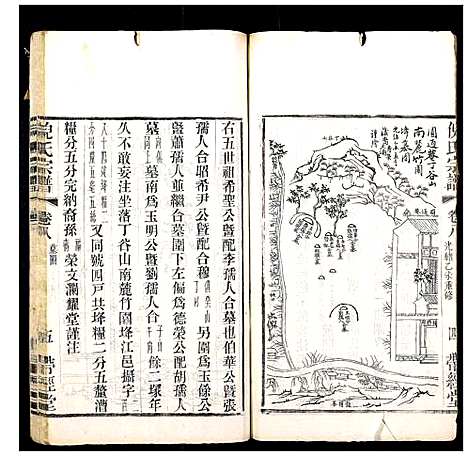 倪氏宗譜
卷八
光緒乙未重修
四
帶經堂
周邊雙丁谷山
南麓竹園
埄墓圖
右五世祖希聖公暨配李孺人合墓也伯華公暨張
孺人合昭希尹公暨配合穆
另圍爲玉俆公
暨蕭孺人並繼合墓圍下左偏爲德榮公配胡孺人
墓
墓南爲玉明公暨劉孺人合
餘二塚年
久不敢妄注坐落丁谷山南麓竹園埄江邑攝字
八十四
又同號四戶共埄糧二分五釐漕
糧分五分完納裔孫
榮文瀾耀堂謹注
倪氏宗譜
卷八
墓圖
五
帶經堂